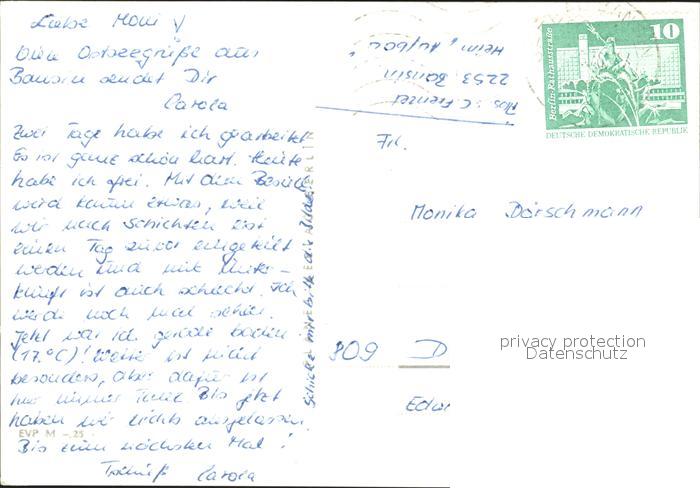 Liebe Moni!
Viele Ostseegrüße aus
Bansin sendet Dir
Carola
Zwei Tage habe ich gearbeitet
Es ist ganz schön hart. Heute
habe ich frei. Mit dem Besuch
wird kaum etwas, weil
wir nach Schichten erst
einen Tag zuvor eingeteilt
werden und mit Unter-
kunft ist auch schlecht. Ich
werde noch mal sehen.
Jetzt war ich gerade baden
(17°C)! Wetter ist nicht
besonders, aber dafür ist
hier immer Tanz. Bis jetzt
haben wir nichts ausgelassen.
Bis zum nächsten Mal!
Tschüß Carola
Schicke mir bitte die Bilder!
EVP M -,25
Abs. C. Frenzel
2253 Bansin
Heim „Aufbau"
10
Berlin-Rathausstraße
DEUTSCHE DEMOKRATISCHE REPUBLIK
Frl.
Monika Dörschmann
809 D
privacy protection
Datenschutz